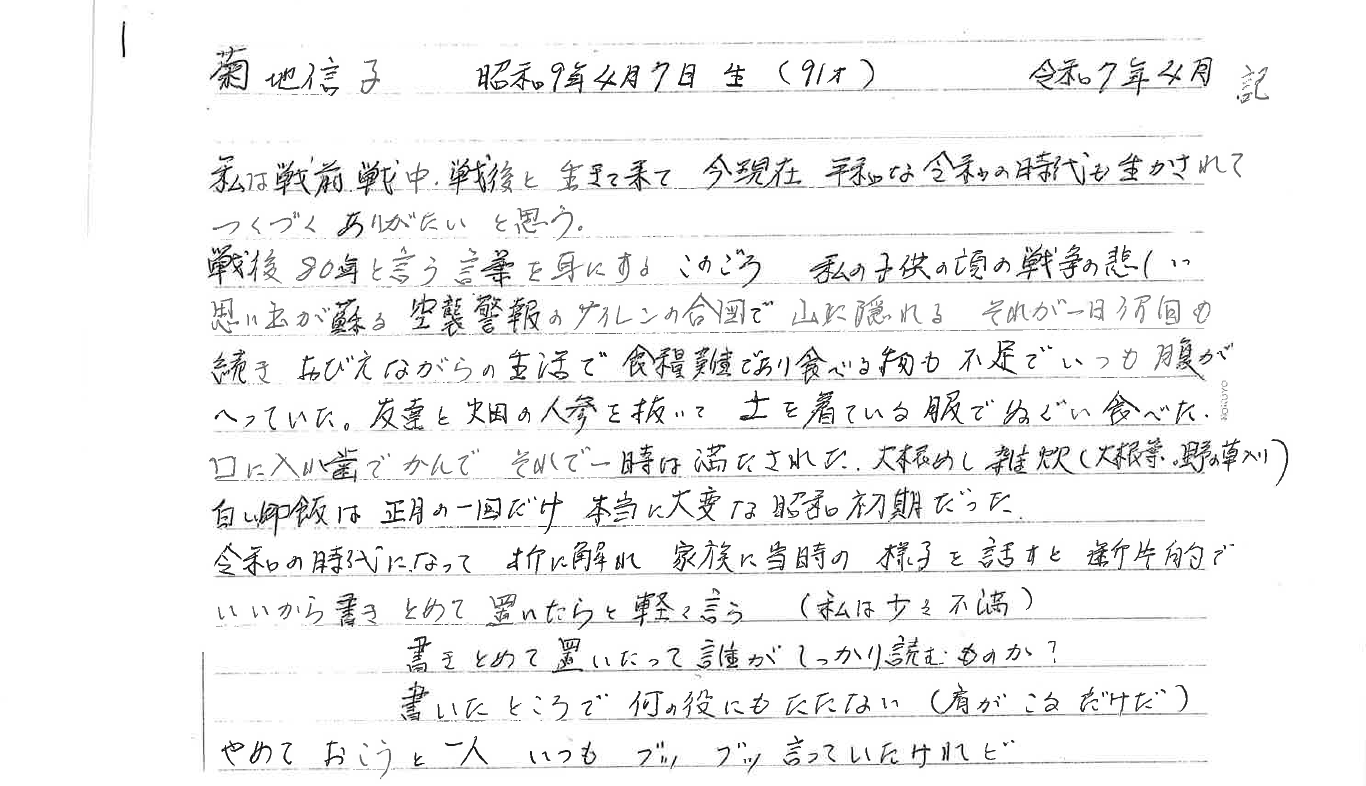 1
菊地信子 昭和9年4月7日生(91才) 令和7年4月 記
私は戦前.戦中.戦後と生きて来て 今現在 平和な令和の時代も生かされて
つくづく ありがたい と思う。
戦後80年と言う言葉を耳にする このごろ 私の子供の頃の戦争の悲しい
思い出が蘇る 空襲警報のサイレンの合図で 山に隠れる それが一日何回も
続き おびえながらの生活で 食糧難であり食べる物も 不足でいつも 腹が
へっていた。友達と畑の人参を抜いて 土を着ている服でぬぐい食べた.
口に入れ歯でかんで それで一時は満たされた. 大根めし 雑炊(大根葉.野の草入り)
白い御飯は 正月の一回だけ 本当に大変な昭和初期だった.
令和の時代になって 折に解れ 家族に当時の 様子を話すと 断片的で
いいから書きとめて置いたらと軽く言う (私は少々不満)
書きとめて置いたって誰がしっかり読むものか?
書いたところで何の役にもたたない(肩がこるだけだ)
やめておこうと一人 いつも ブツ ブツ 言っていたけれど
KOKUYO